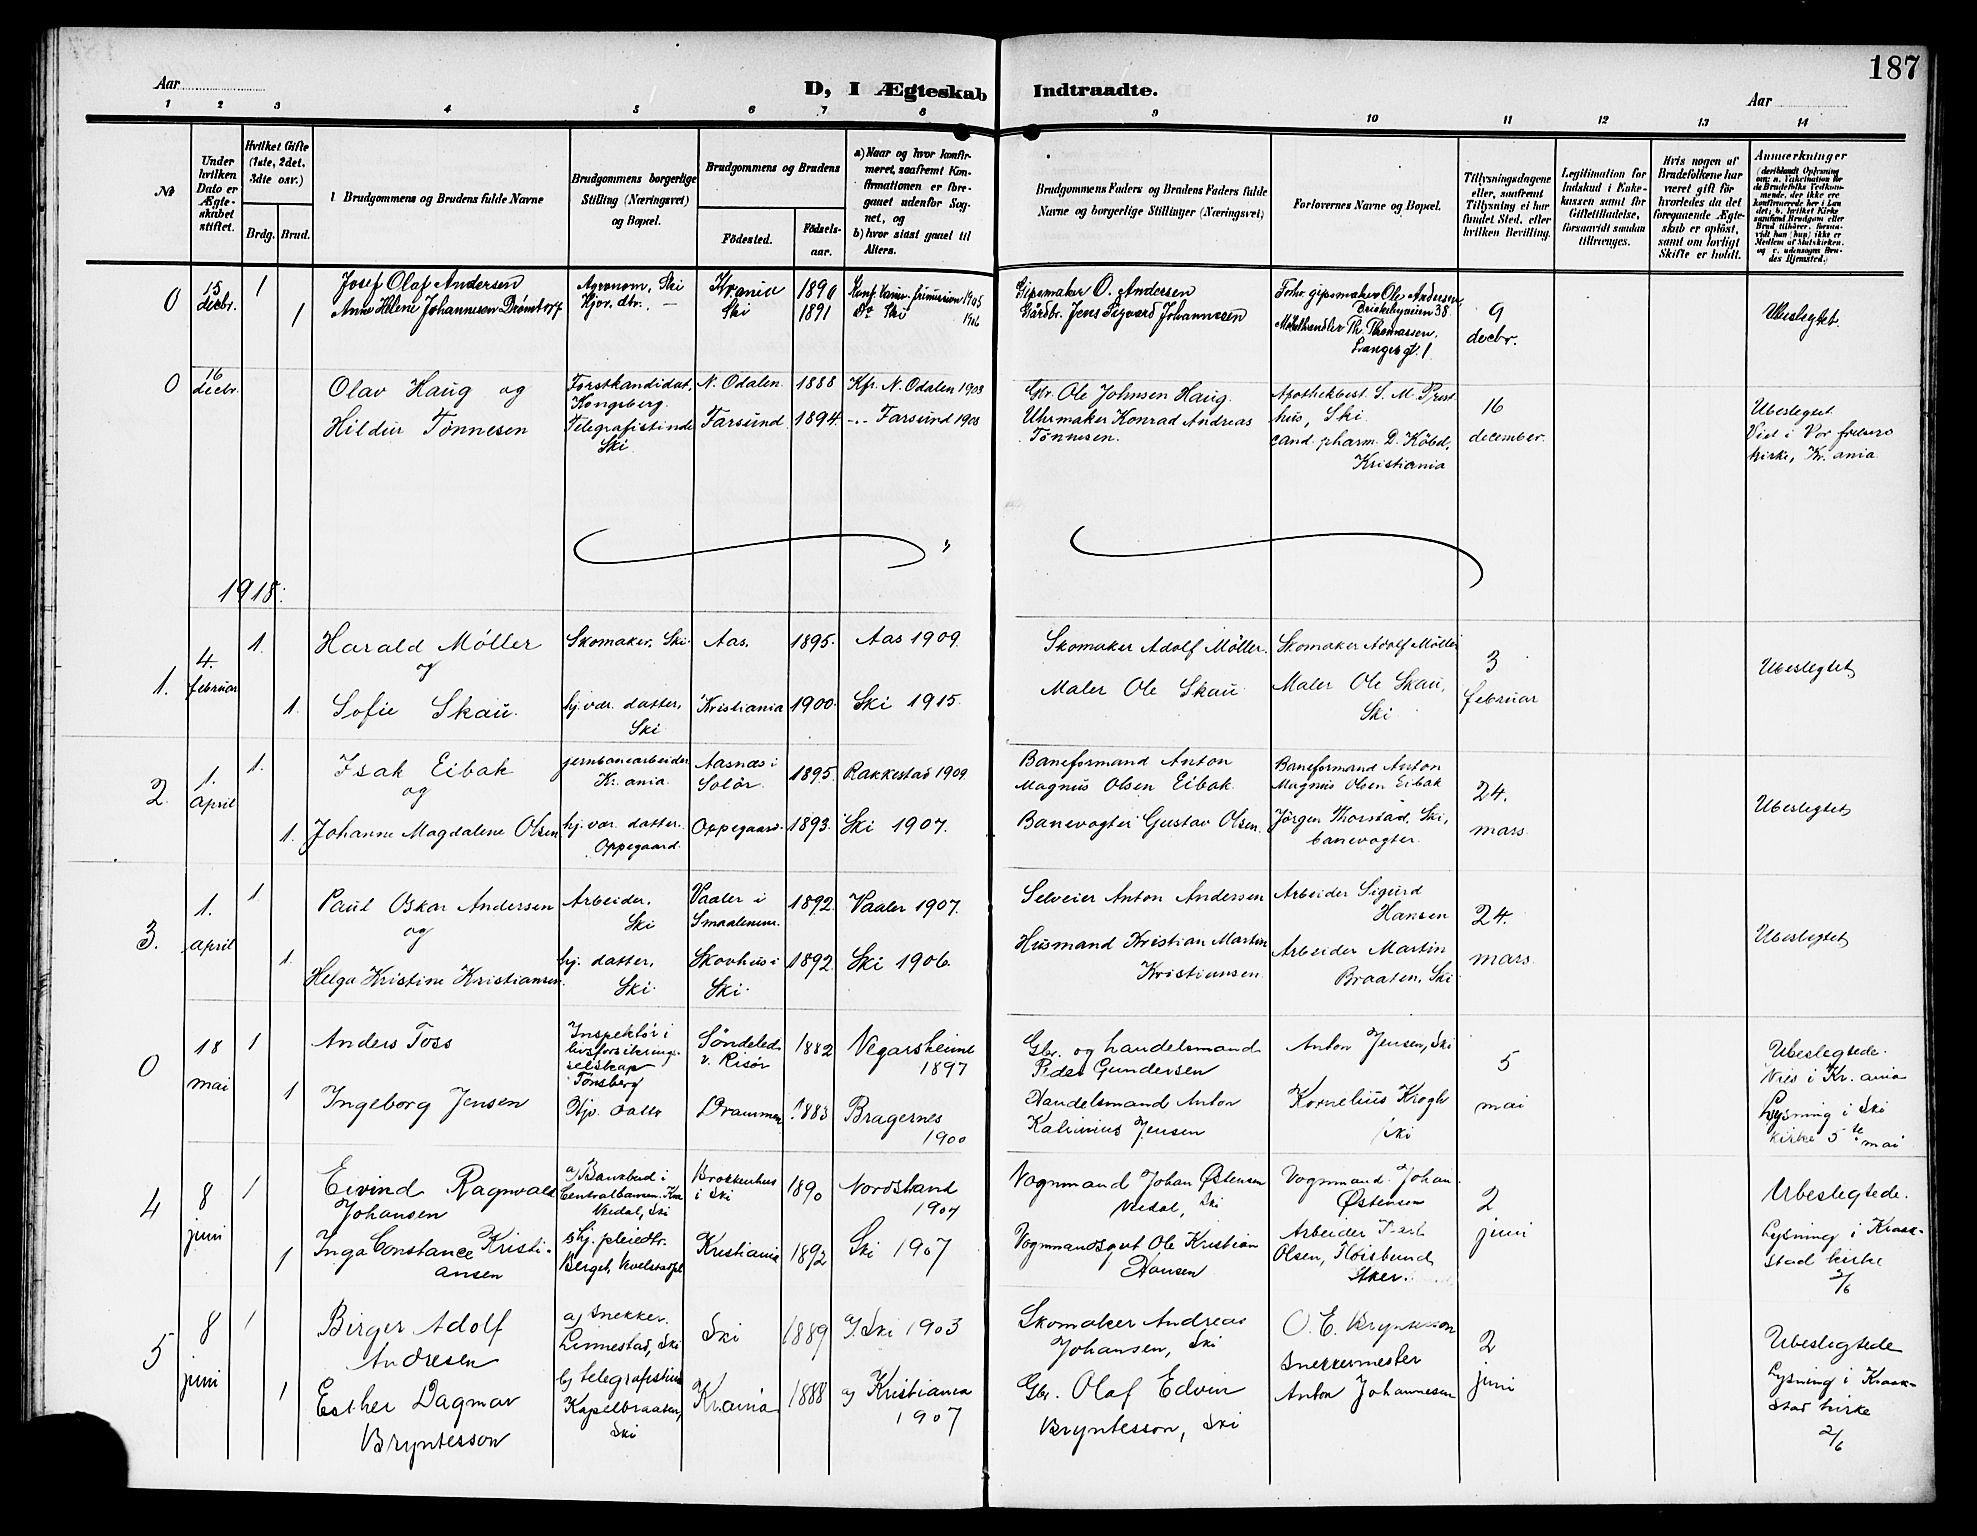 187
Aar
D, I Ægteskab Indtraadte.
Aar
1 2 3 4 5 6 7 8 9 10 11 12 13 14
No
Under hvilken Dato er Ægteskabet stiftet.
Hvilket Gifte (1ste, 2det, 3die osv.)
Brdg. Brud.
Brudgommens og Brudens fulde Navne
Brudgommens borgerlige Stilling (Næringsvei) og Bopæl.
Brudgommens og Brudens
Fødested.
Fødselsaar.
a) Naar og hvor konfirmeret, saafremt Konfirmationen er foregaaet udenfor Sognet, og
b) hvor sidst gaaet til Alters.
Brudgommens Faders og Brudens Faders fulde Navne og borgerlige Stillinger (Næringsvei)
Forlovernes Navne og Bopæl.
Tillysningsdagene eller, saafremt Tillysning ei har fundet Sted, efter hvilken Bevilling.
Legitimation for Indskud i Enkekassen samt for Giftetilladelse, forsaavidt saadan tiltrænges.
Hvis nogen af Brudefolkene har været gift før hvorledes da det foregaaende Ægteskab er opløst, samt om lovligt Skifte er holdt.
Anmerkninger
0 15 decbr. 1 Josef Olaf Andersen Agronom, Ski Kr.ania 1890
1 Anne Helene Johannesen Drømtorp Hjv. dtr. Ski 1891 Do Ski
Gipsmaker O. Andersen
Gårdbr. Jens Johannesen
gipsmaker Ole Andersen,
Briskebyveien 38
Th. Thomassen,
Langes gt. 1
9 decbr.
Ubeslegtet.
0 16 decbr. Olav Haug og Forstkandidat, Kongsberg. N. Odalen. 1888 Kfr. N. Odalen 1903
Hildur Tønnesen Telegrafistinde Ski Farsund 1894. Farsund 1908
Gbr. Ole Johnsen Haug.
Uhrmaker Konrad Andreas Tønnesen.
Apothekbest. S. M. Presthus, Ski.
cand. pharm. D. Købd, Kristiania
16 december.
Ubeslegtet
Viet i Vor frelsers kirke, Kr.ania.
1918.
1. 4. februar 1. Harald Möller Skomaker, Ski Aas. 1895. Aas 1909.
og
1. Sofie Skau. hj.vær. datter, Ski Kristiania 1900. Ski 1915.
Skomaker Adolf Möller.
Maler Ole Skau
Skomaker Adolf Möller
Maler Ole Skau, Ski
3 februar
Ubeslegtet
2. 1. april 1. Isak Eibak jernbanearbeider Kr.ania Aasnæs i Solör. 1895. Rakkestad 1909
og
1. Johanne Magdalene Olsen hj.vær. datter. Oppegaard. Oppegaard. 1893. Ski 1907.
Baneformand Anton Magnus Olsen Eibak.
Banevogter Gustav Olsen.
Baneformand Anton Magnus Olsen Eibak
Jörgen Thorstad, Ski, banevogter.
24. mars.
Ubeslegtet
3. 1. april 1 Paul Oskar Andersen Arbeider, Ski Vaaler i Smaalenene. 1892. Vaaler 1907.
og
1. Helga Kristine Kristiansen. hj. datter, Ski Skovhus i Ski. 1892. Ski 1906.
Selveier Anton Andersen
Husmand Kristian Martin Kristiansen.
Arbeider Sigurd Hansen
Arbeider Martin Braaten, Ski
24. mars.
Ubeslegtet
0 18 mai 1 Anders Toss Inspektör i livsforsikringsselskap Tönsberg Söndeled v. Risör 1882 Vegarsheien 1897
1 Ingeborg Jensen Hjv. datter Drammen 1883 Bragernes 1900
Gbr. og handelsmand Peder Gundersen
Handelsmand Anton Jensen
Anton Jensen, Ski
Kornelius Krogh Ski
5 mai
Ubeslegtede.
Viet i Kr.ania
Lysning i Ski kirke 5te mai
4 8 juni 1 Eivind Ragnvald Johansen a) Bankbud i Centralbanken Kra Vevdal, Ski i Ski 1890 Nordstrand 1904
1 Inga Constance Kristiansen b) hj. pleiedtr. Berget, Kristiania 1892 Ski 1907
Vognmand Johan Østensen Ski
Vognmandsgut Ole Kristian Hansen
Vognmand Johan Østensen
Arbeider Karl Olsen, Fløisbund Aker.
2 juni
Ubeslegtede.
Lysning i Kraakstad kirke 2/6
5 8 juni 1 Birger Adolf Andresen a) Snekker. Linnestad, Ski Ski 1889 a) Ski 1903
1 Esther Dagmar Bryntesson b) telegrafistinde Kapelbraaten, Ski Kr.ania 1888 b) Kristiania 1907
Skomaker Andreas Johansen, Ski
Gbr. Olaf Edvin Bryntesson, Ski
O. E. Bryntesson
Snekkermester Anton Johannesen
2 juni
Ubeslegtede
Lysning i Kraakstad kirke 2/6